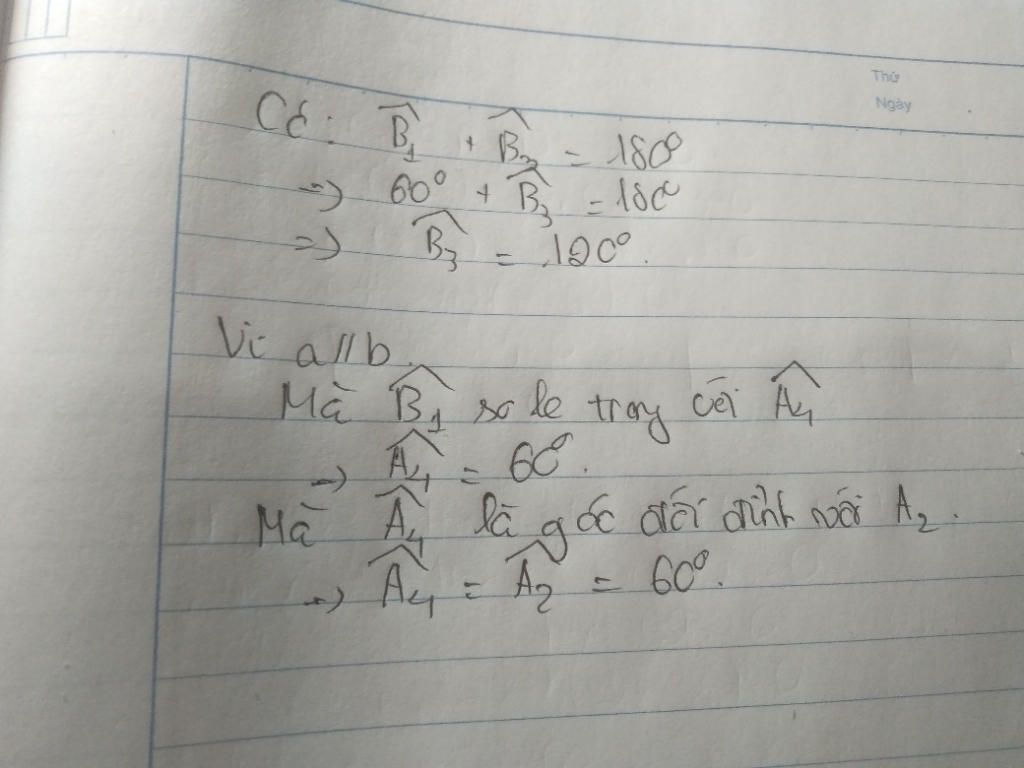 Thứ
Ngày
Có: B̂₁ + B̂₃ = 180⁰
=> 60⁰ + B̂₃ = 180⁰
=> B̂₃ = 120⁰.
Vì a // b.
Mà B̂₁ so le trong với Â₄
=> Â₄ = 60⁰.
Mà Â₄ là góc đối đỉnh với A₂.
=> Â₄ = Â₂ = 60⁰.